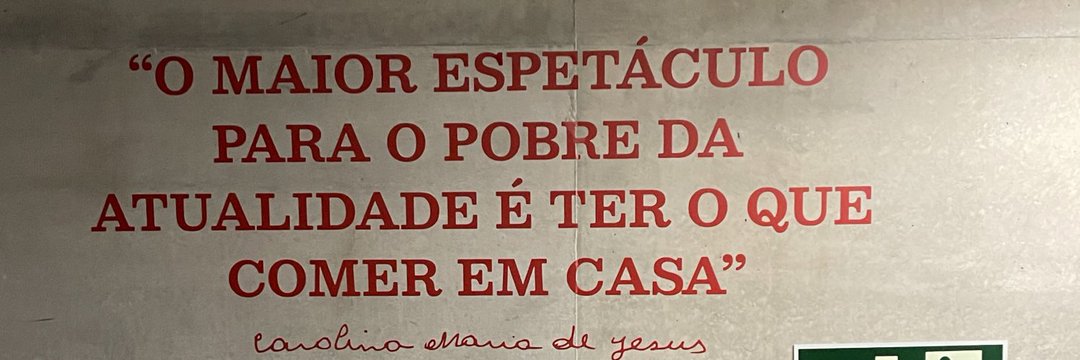 “O MAIOR ESPETÁCULO
PARA O POBRE DA
ATUALIDADE É TER O QUE
COMER EM CASA”
Carolina Maria de Jesus